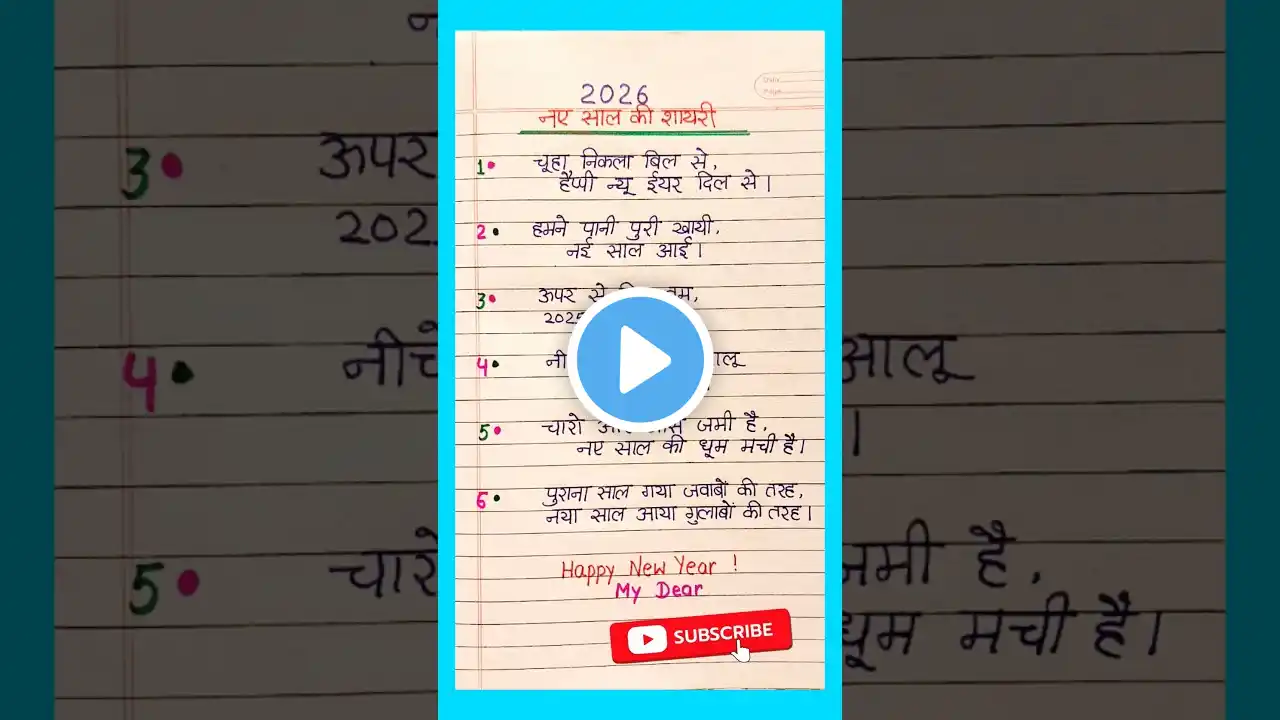 2026
नए साल की शायरी
1• चूहा निकला बिल से,
हैप्पी न्यू ईयर दिल से।
2• हमने पानी पुरी खायी,
नई साल आई।
3• ऊपर से
2025
4•
5• चारो जमी है,
नए साल की धूम मची है।
6• पुराना साल गया जवाबों की तरह,
नया साल आया गुलाबों की तरह।
Happy New Year !
My Dear
SUBSCRIBE
3• ऊपर
4• आलू
।
5• जमी है,
धूम मची है।